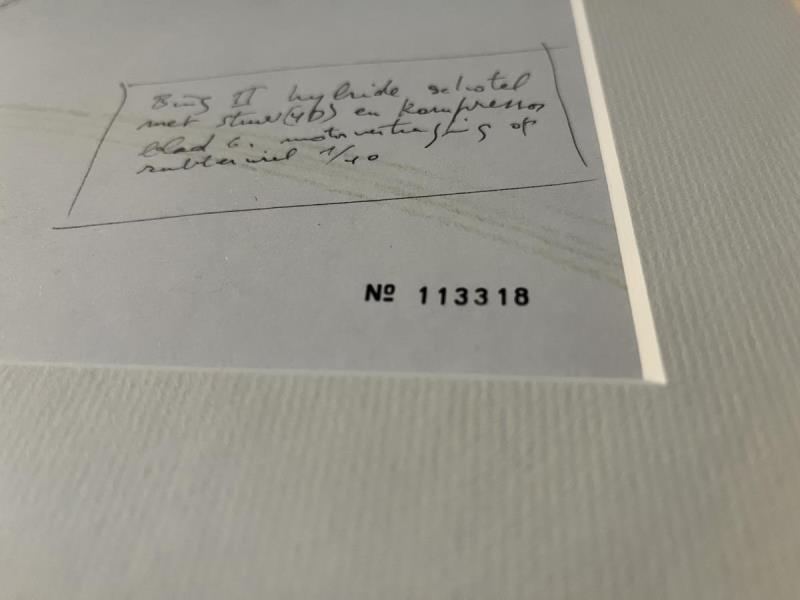 Bing II hybride schotel
met stuw(4b) en kompressor
blad 6. motorvertraging op
rubberwiel 1/40
Nº 113318